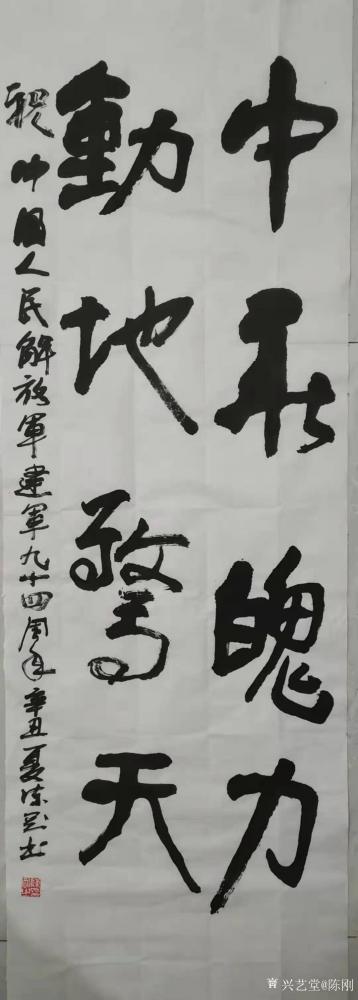 中魄力
動地驚天
祝中国人民解放軍建軍九十四周年辛丑夏陈刚书
兴艺堂@陈刚